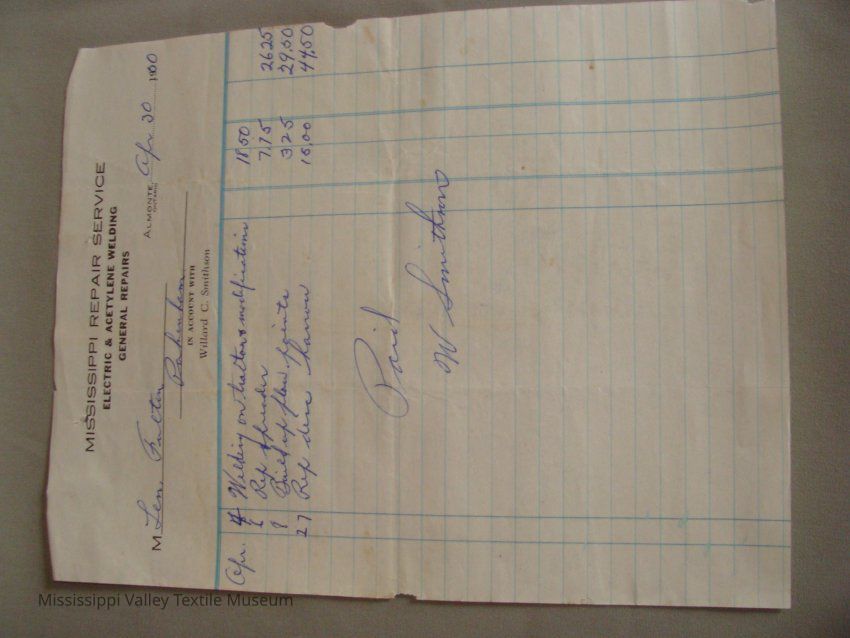 MISSISSIPPI REPAIR SERVICE
ELECTRIC & ACETYLENE WELDING
GENERAL REPAIRS
ALMONTE, Apr 30 1960
ONTARIO
M Len. Fulton
Pakenham
IN ACCOUNT WITH
Willard C. Smithson
Apr. 4 Welding on tractor & modifications 18.50
Rep spreader 7.75 26.25
8 Build up plow points 3.25 29.50
27 Rep disc harrow 15.00 44.50
Paid
W Smithson
Mississippi Valley Textile Museum